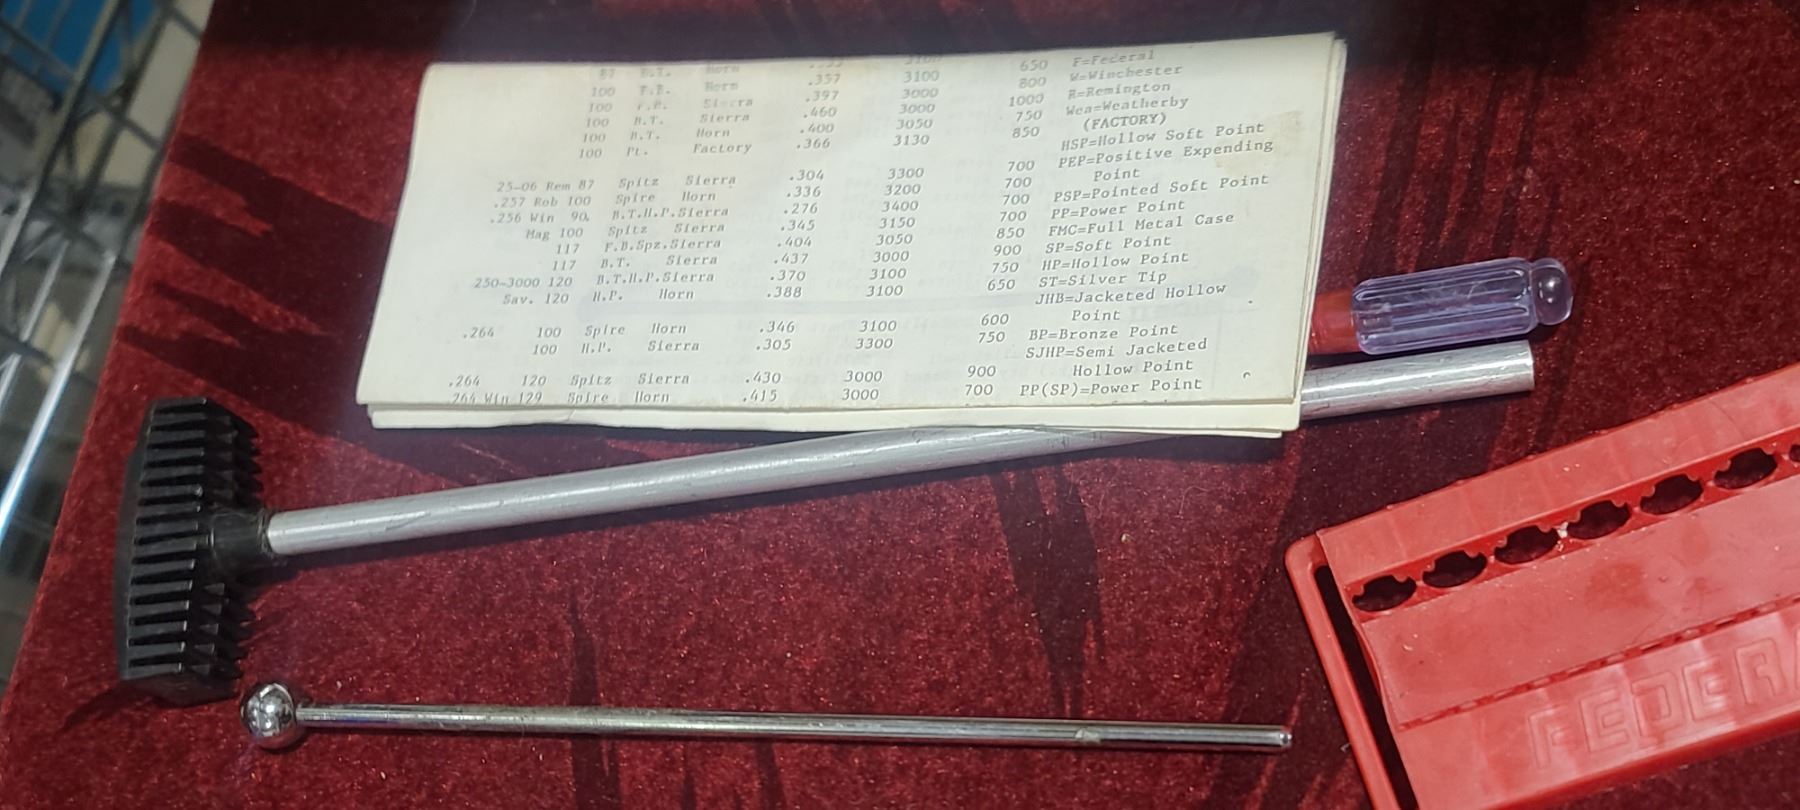 87 B.T. Horn .355 3100 650 F=Federal
100 F.B. Horn .357 3100 800 W=Winchester
100 F.B. Sierra .397 3000 1000 R=Remington
100 B.T. Sierra .460 3000 750 Wea=Weatherby
100 B.T. Horn .400 3050 850 (FACTORY)
100 Pt. Factory .366 3130 HSP=Hollow Soft Point
PEP=Positive Expending
25-06 Rem 87 Spitz Sierra .304 3300 700 Point
.257 Rob 100 Spire Horn .336 3200 700 PSP=Pointed Soft Point
.256 Win 90. B.T.H.P.Sierra .276 3400 700 PP=Power Point
Mag 100 Spitz Sierra .345 3150 700 FMC=Full Metal Case
117 F.B.Spz.Sierra .404 3050 850 SP=Soft Point
117 B.T. Sierra .437 3000 900 HP=Hollow Point
250-3000 120 B.T.H.P.Sierra .370 3100 750 ST=Silver Tip
Sav. 120 H.P. Horn .388 3100 650 JHB=Jacketed Hollow
Point
.264 100 Spire Horn .346 3100 600 BP=Bronze Point
100 H.P. Sierra .305 3300 750 SJHP=Semi Jacketed
Hollow Point
.264 120 Spitz Sierra .430 3000 900 PP(SP)=Power Point
.264 Win 129 Spire Horn .415 3000 700
FEDERA